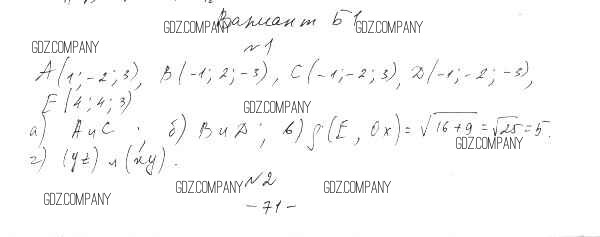 Вариант Б1
GDZ.COMPANY GDZ.COMPANY
№1
GDZ.COMPANY
A(1; -2; 3), B(-1; 2; -3), C(-1; -2; 3), D(-1; -2; -3),
E(4; 4; 3)
GDZ.COMPANY
а) A и C; б) B и D; в) ρ(E, Ox) = √16+9 = √25 = 5.
GDZ.COMPANY
г) (yz) и (xy).
№2
GDZ.COMPANY GDZ.COMPANY
GDZ.COMPANY
- 71 -